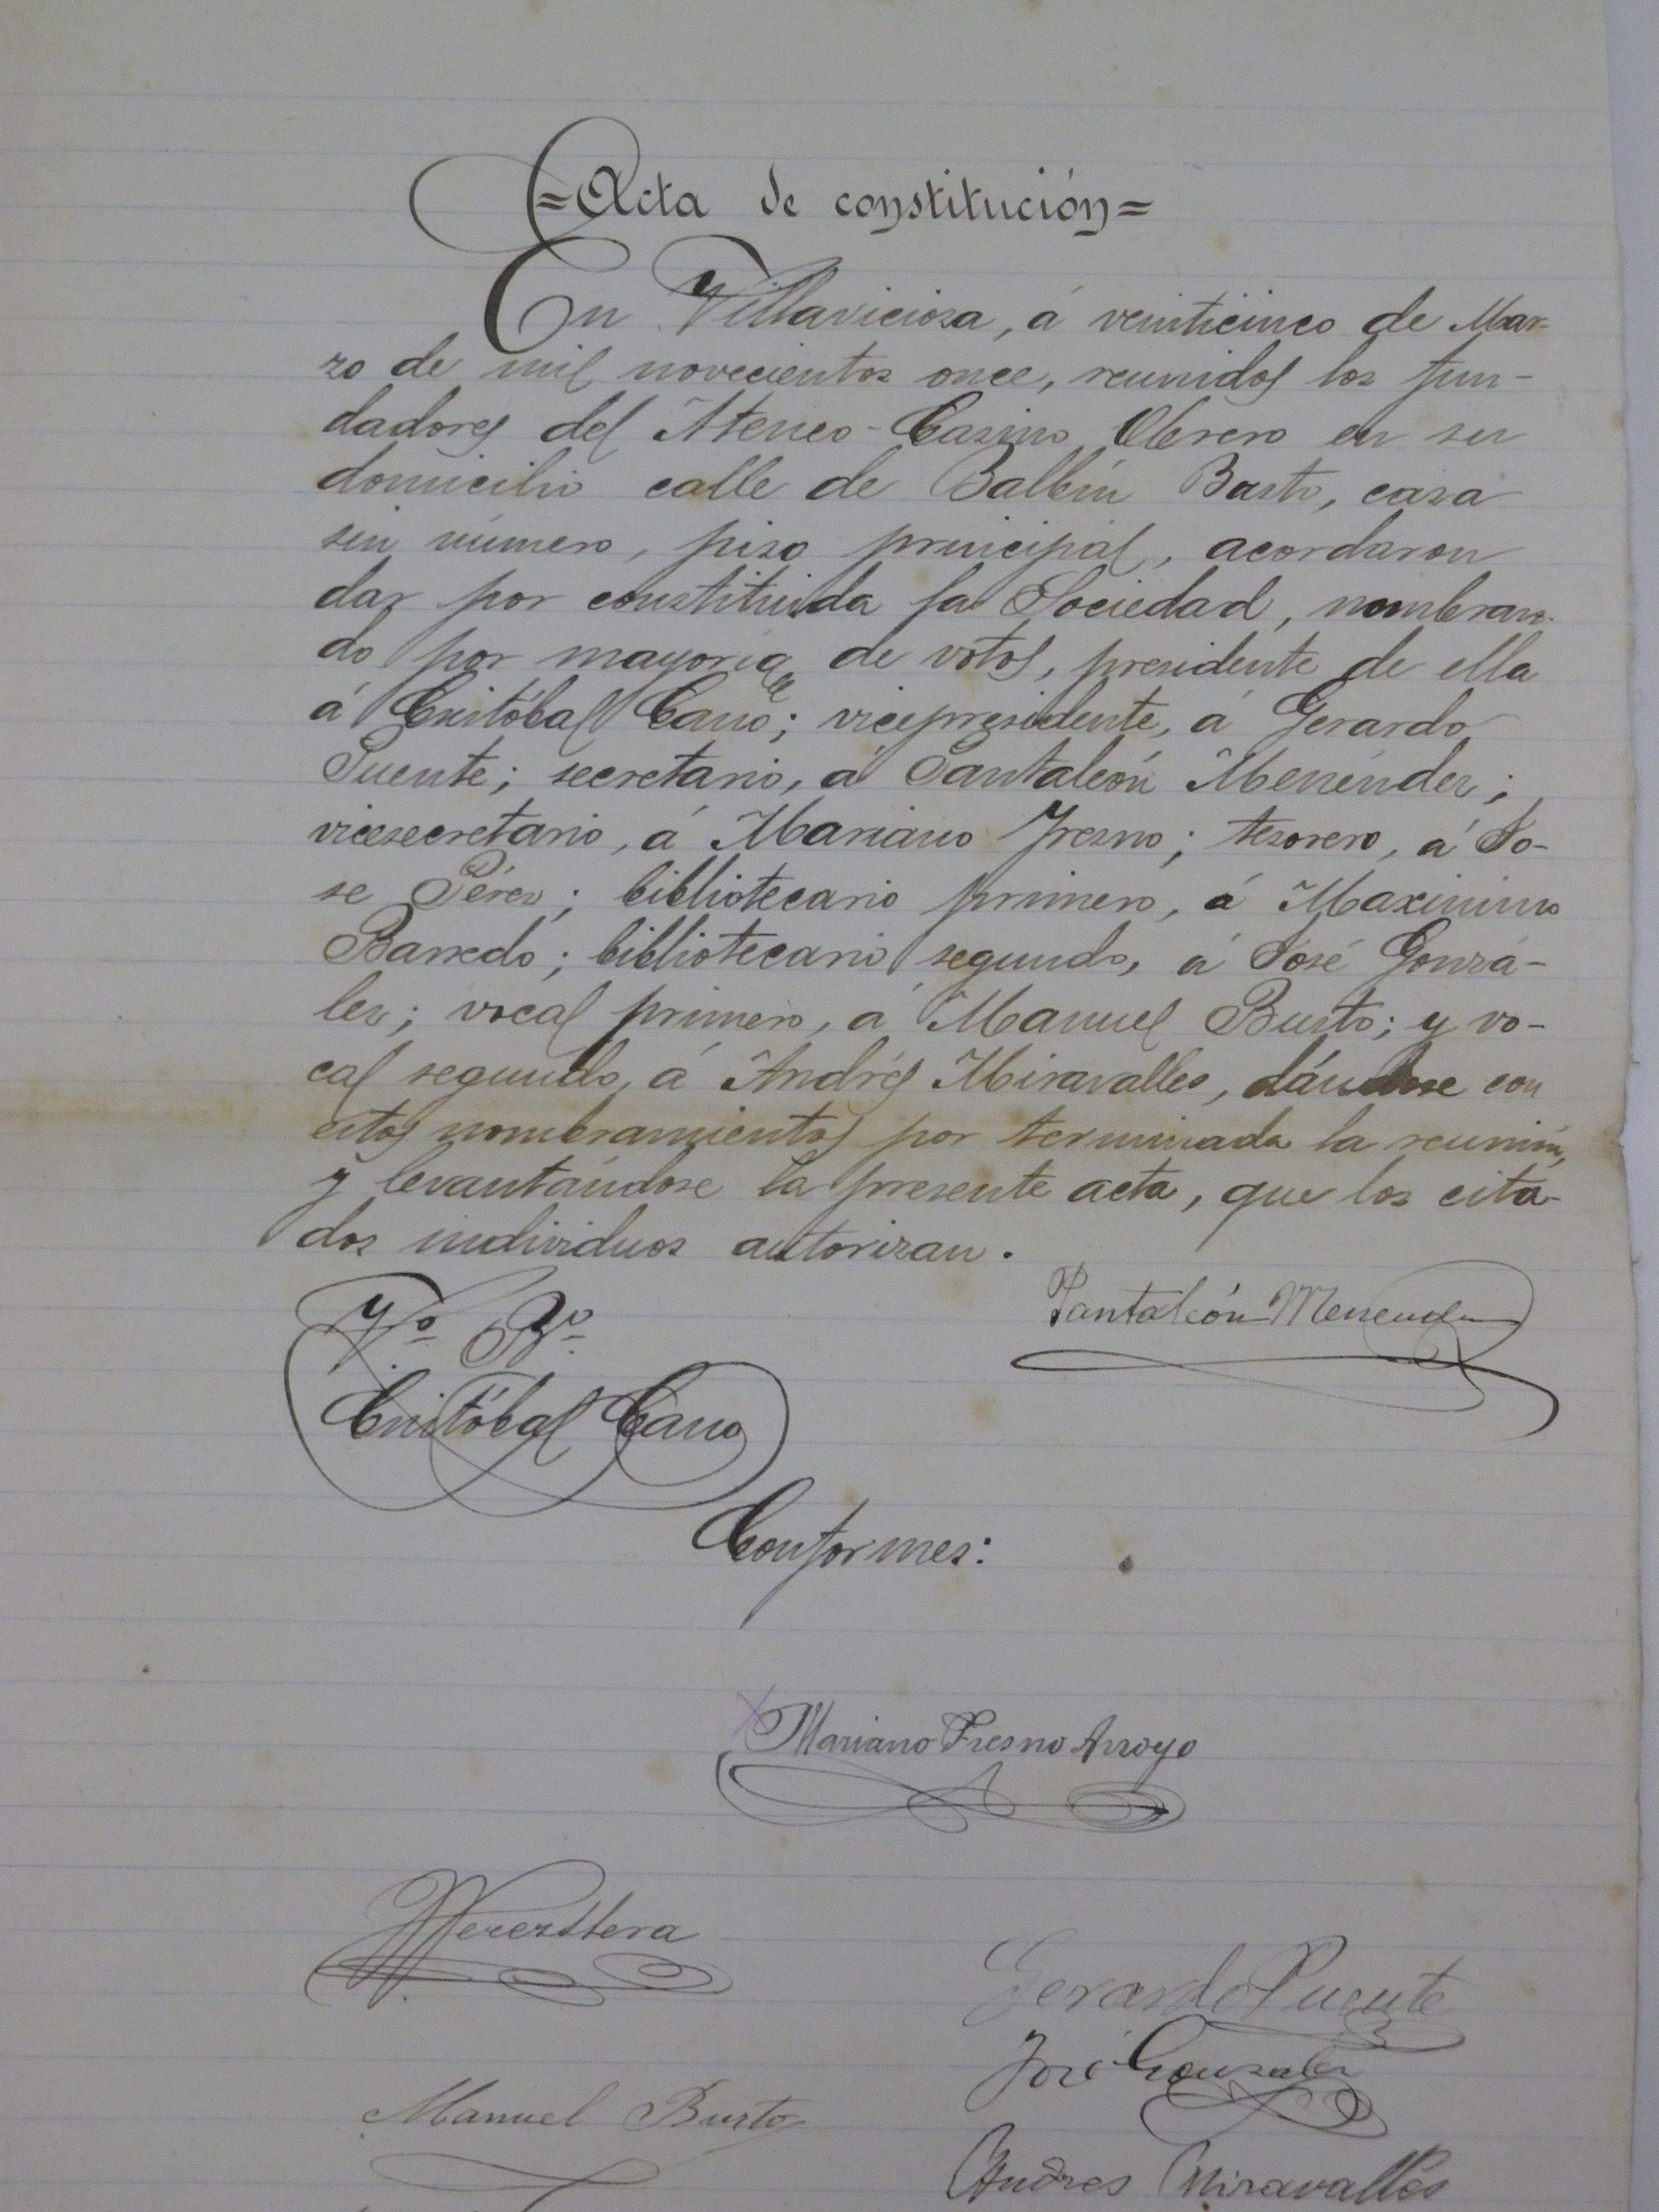 =Acta de constitución=
En Villaviciosa, á veinticinco de Mar-
zo de mil novecientos once, reunidos los fun-
dadores del Ateneo-Casino Obrero en su
domicilio calle de Balbín Busto, casa
sin número, piso principal, acordaron
dar por constituida la Sociedad, nombran-
do por mayoría de votos, presidente de ella
á Cristóbal Cano; vicepresidente, á Gerardo
Puente; secretario, á Pantaleón Menéndez;
vicesecretario, á Mariano Fresno; tesorero, á Jo-
se Pérez; bibliotecario primero, á Maximino
Barredo; bibliotecario segundo, á José Gonzá-
lez; vocal primero, á Manuel Busto; y vo-
cal segundo, á Andrés Miravalles, dándose con
estos nombramientos por terminada la reunión,
y levantándose la presente acta, que los cita-
dos individuos autorizan.
Pantaleón Menendez
Vº. Bº.
Cristóbal Cano
Conformes:
Mariano Fresno Arroyo
Gerardo Puente
José Gonzalez
Manuel Busto
Andres Miravalles